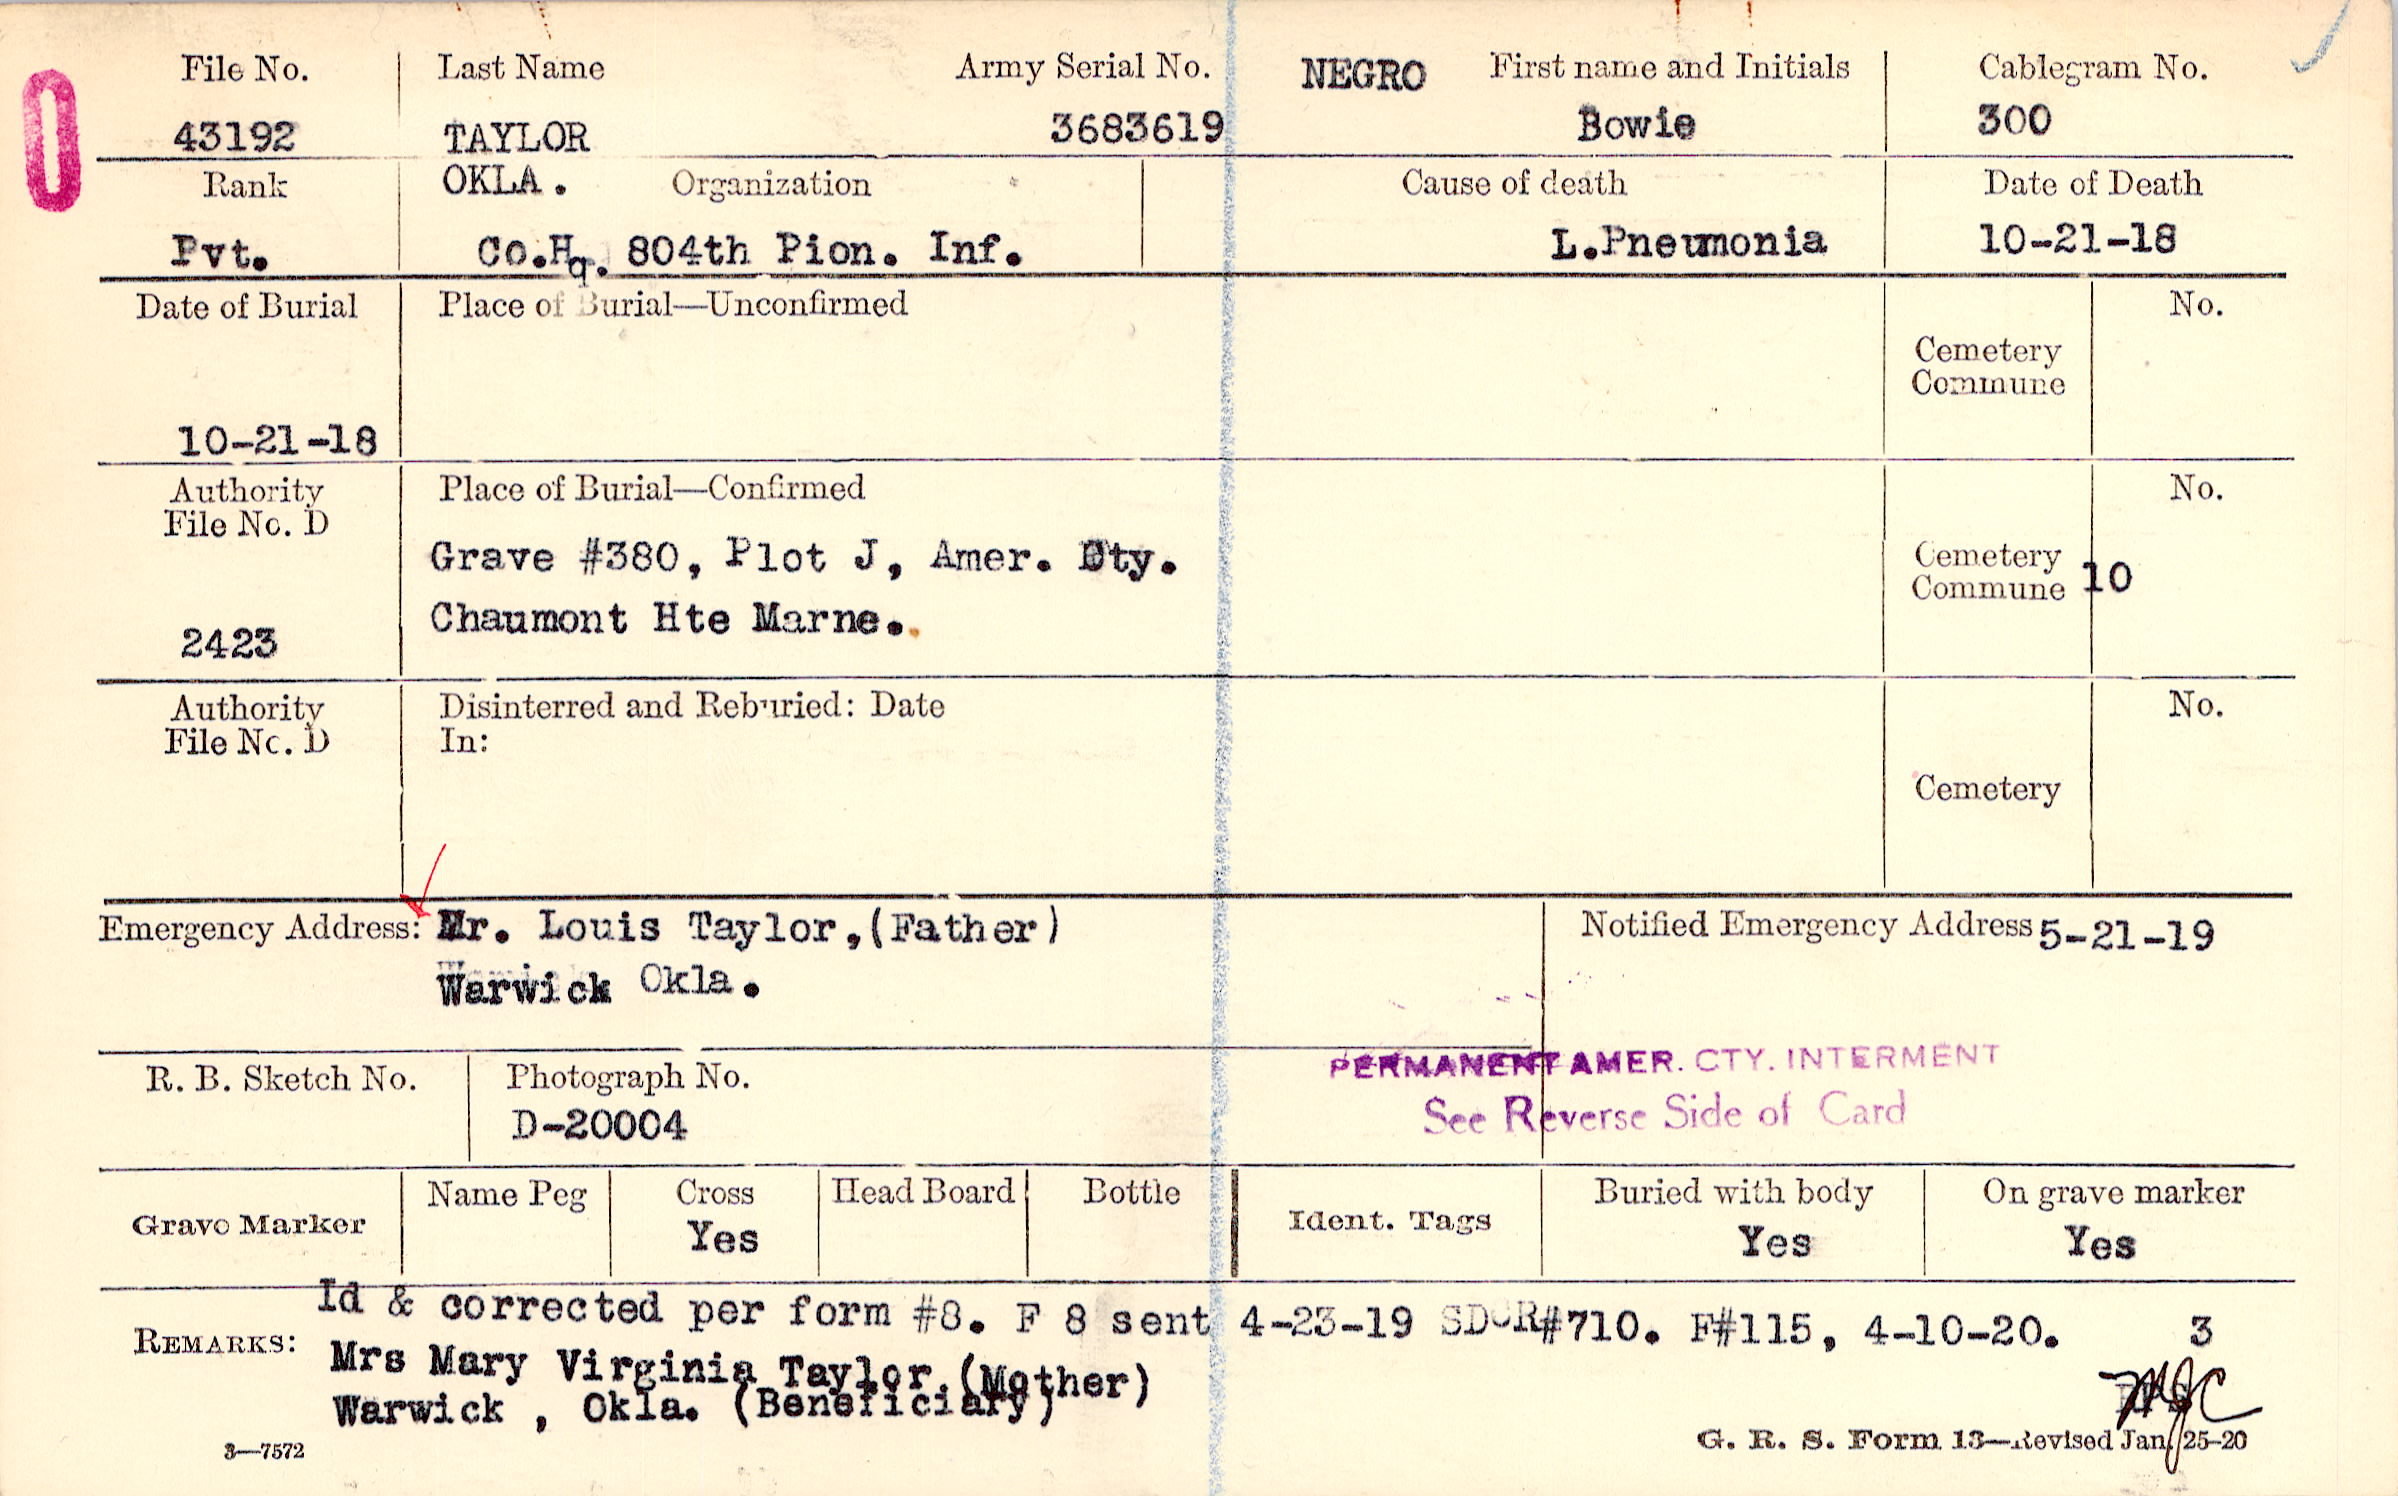 File No. Last Name Army Serial No. NEGRO First name and Initials Cablegram No.
43192 TAYLOR 3683619 Bowie 300
Rank OKLA. Organization Cause of death Date of Death
Pvt. Co.Hq. 804th Pion. Inf. L.Pneumonia 10-21-18
Date of Burial Place of Burial—Unconfirmed No.
Cemetery
Commune
10-21-18
Authority Place of Burial—Confirmed No.
File No. D
Grave #380, Plot J, Amer. Cty. Cemetery
Commune 10
Chaumont Hte Marne.
2423
Authority Disinterred and Reburied: Date No.
File No. D In:
Cemetery
Emergency Address: Mr. Louis Taylor,(Father) Notified Emergency Address 5-21-19
Warwick Okla.
PERMANENT AMER. CTY. INTERMENT
R. B. Sketch No. Photograph No.
D-20004 See Reverse Side of Card
Grave Marker Name Peg Cross Head Board Bottle Ident. Tags Buried with body On grave marker
Yes Yes Yes
Id & corrected per form #8. F 8 sent 4-23-19 SDOR#710. F#115, 4-10-20. 3
REMARKS: Mrs Mary Virginia Taylor (Mother)
Warwick , Okla. (Beneficiary)
MJC
3—7572 G. R. S. Form 13—Revised Jan. 25-20